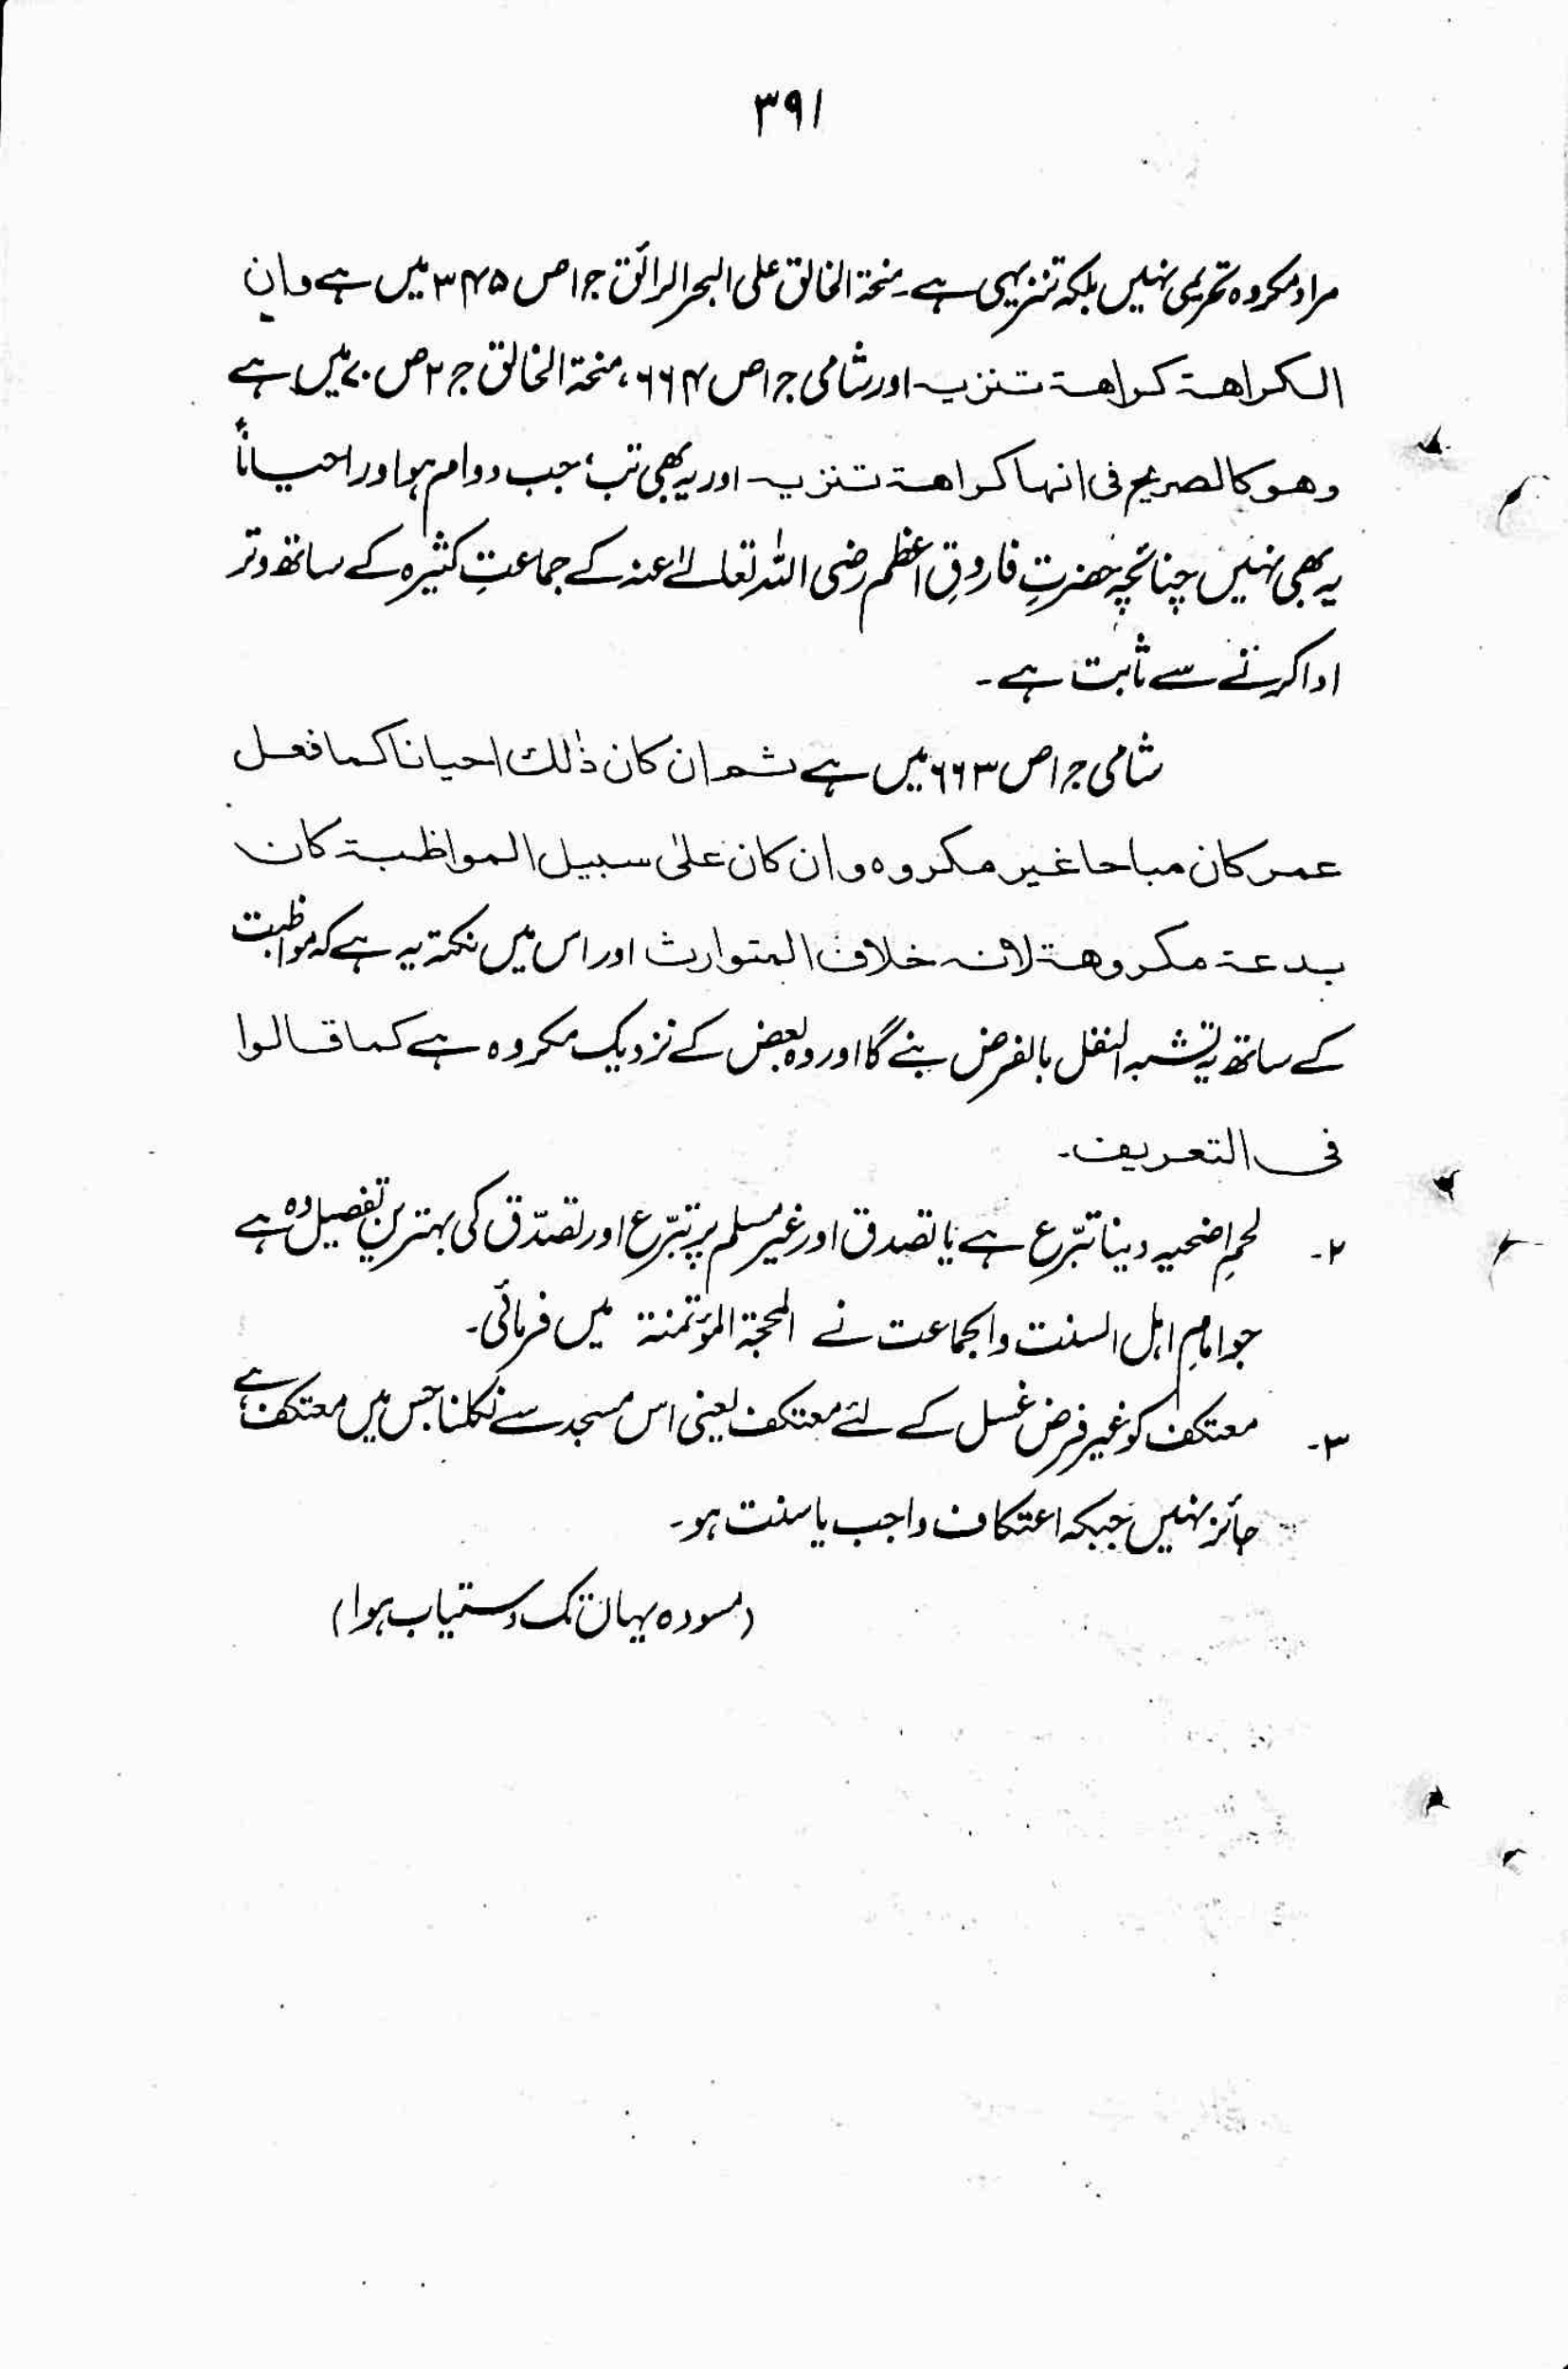 ۳۹۱
مراد مکروہ تحریمی نہیں بلکہ تنزیہی ہے۔ منحۃ الخالق علی البحر الرائق ج۱ ص ۳۴۵ میں ہے وان
الکراھۃ کراھۃ تنزیہ اور شامی ج۱ ص ۶۶۴، منحۃ الخالق ج۲ ص ۷۰ میں ہے
وھو کالصریح فی انھا کراھۃ تنزیہ اور یہ بھی تب؛ جب دوام ہو اور احیاناً
یہ بھی نہیں چنانچہ حضرتِ فاروقِ اعظم رضی اللہ تعالےٰ عنہ کے جماعتِ کثیرہ کے ساتھ وتر
ادا کرنے سے ثابت ہے۔
شامی ج۱ ص ۶۶۳ میں ہے ثم ان کان ذٰلک احیانا کما فعل
عمر کان مباحا غیر مکروہ وان کان علیٰ سبیل المواظبۃ کان
بدعۃ مکروھۃ لانہ خلاف المتوارث اور اس میں نکتہ یہ ہے کہ مواظبت
کے ساتھ یہ تشبہ النفل بالفرض بنے گا اور وہ بعض کے نزدیک مکروہ ہے کما قالوا
فی التعریف۔
۲۔ لحمِ اضحیہ دینا تبرّع ہے یا تصدق اور غیر مسلم پر تبرّع اور تصدّق کی بہترین تفصیل وہ ہے
جو امامِ اہل السنت والجماعت نے المحجۃ المؤتمنۃ میں فرمائی۔
۳۔ معتکف کو غیر فرض غسل کے لئے معتکف یعنی اس مسجد سے نکلنا جس میں معتکف ہے
جائز نہیں جبکہ اعتکاف واجب یا سنت ہو۔
(مسودہ یہاں تک دستیاب ہوا)